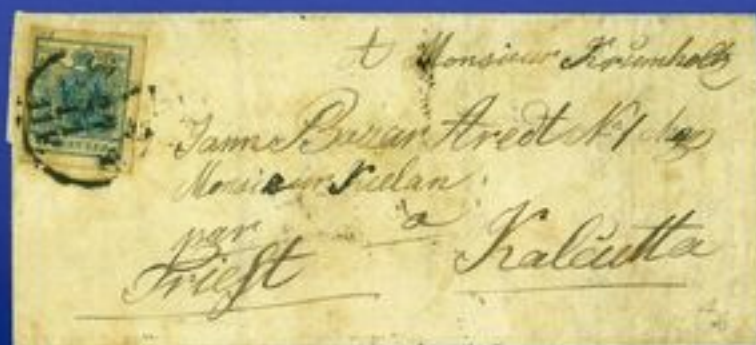 A Monsieur Krumholtz
Jann Bazar Aredt N: 1 chez
Monsieur Nielan
par à
Triest Kalcutta